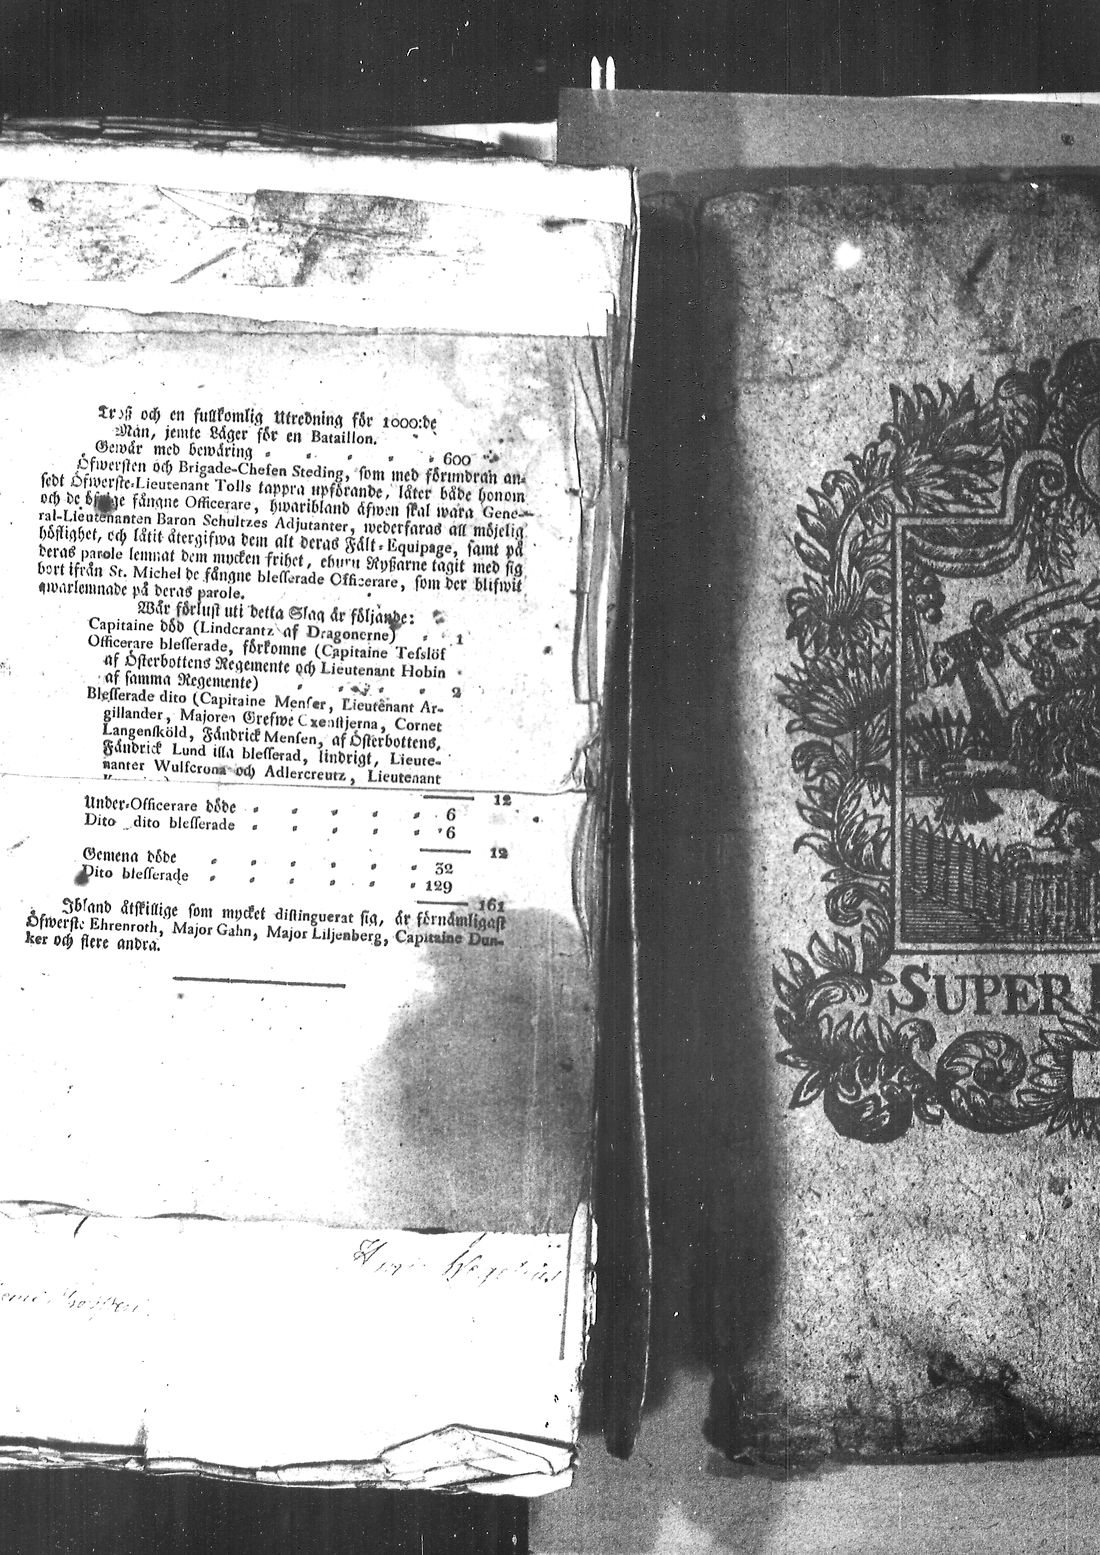 Troß och en fullkomlig Utredning för 1000:de
Man, jemte Läger för en Bataillon.
Gewär med bewäring 600
Öfwersten och Brigade-Chefen Steding, som med förundran an-
sedt Öfwerste-Lieutenant Tolls tappra upförande, låter både honom
och de öfrige fångne Officerare, hwaribland äfwen skal wara Gene-
ral-Lieutenanten Baron Schultzes Adjutanter, wederfaras all möjelig
höflighet, och låtit återgifwa dem alt deras Fält-Equipage, samt på
deras parole lemnat dem mycken frihet, ehuru Ryßarne tagit med sig
bort ifrån St. Michel de fångne blesserade Officerare, som der blifwit
qwarlemnade på deras parole.
Wår förlust uti detta Slag är följande:
Capitaine död (Lindcrantz af Dragonerne) 1
Officerare blesserade, förkomne (Capitaine Tesslöf
af Österbottens Regemente och Lieutenant Hobin
af samma Regemente) 2
Blesserade dito (Capitaine Menser, Lieutenant Ar-
gillander, Majoren Grefwe Oxenstjerna, Cornet
Langensköld, Fändrick Mensen, af Österbottens,
Fändrick Lund illa blesserad, lindrigt, Lieute-
nanter Wulfcrona och Adlercreutz, Lieutenant
12
Under-Officerare döde 6
Dito dito blesserade 6
12
Gemena döde 32
Dito blesserade 129
161
Ibland åtskillige som mycket distinguerat sig, är förnämligast
Öfwerste Ehrenroth, Major Gahn, Major Liljenberg, Capitaine Dun-
ker och flere andra.
SUPER